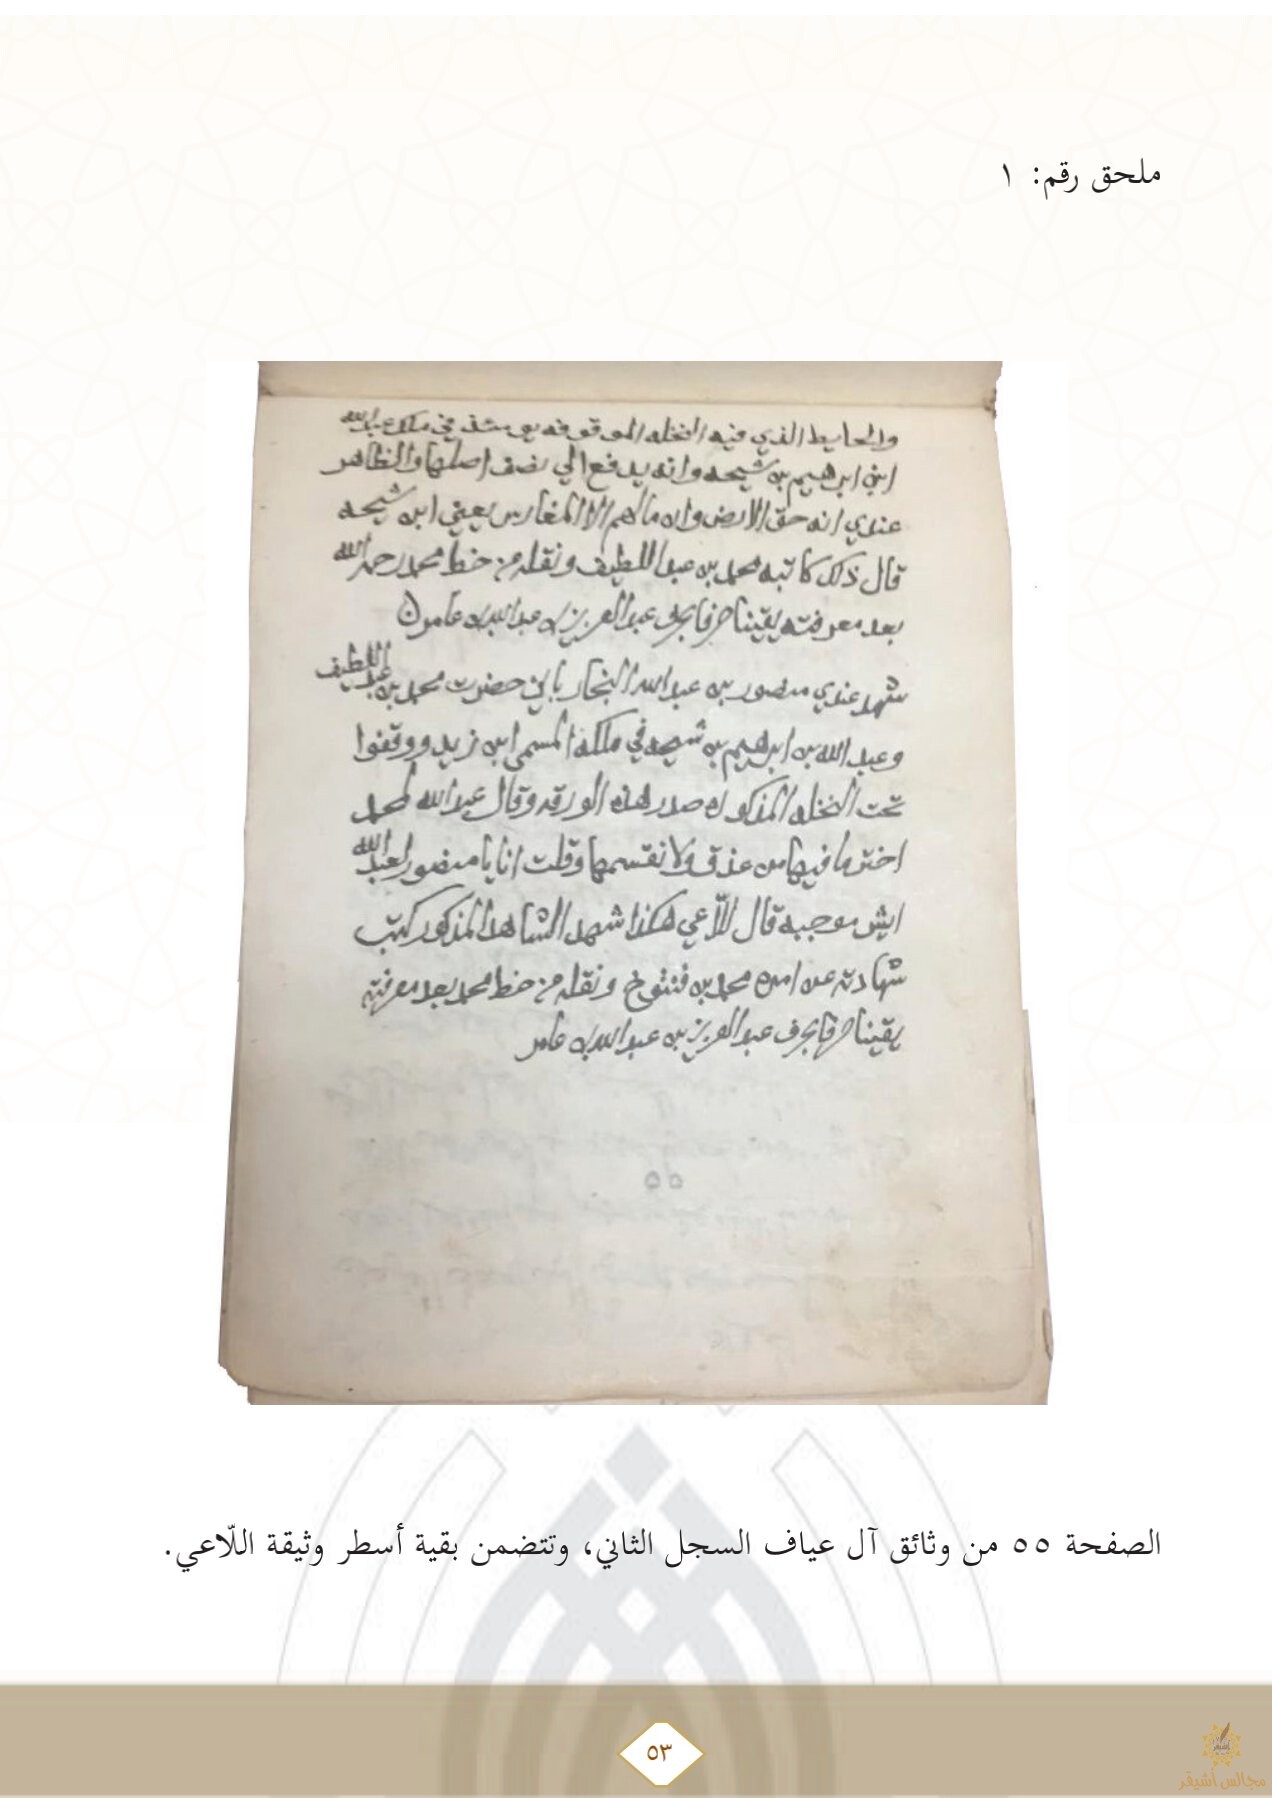 ملحق رقم: ١
والحايط الذي فيه النخله الموقوفه يومئذ في ملك عبدالله
ابن ابرهيم بن شيحه وانه يدفع الي نصف اصلها والظاهر
عندي انه حق الارض وان مالهم الا المغارس يعني ابن شيحه
قال ذلك كاتبه محمد بن عبداللطيف ونقله من خط محمد رحمه الله
بعد معرفته يقينا حرفا بحرف عبدالعزيز بن عبدالله بن عامر
شهد عندي منصور بن عبدالله النجار باني حضرت محمد بن عبداللطيف
وعبدالله بن ابرهيم بن شيحه في ملكه المسمى ابن زيد ووقفوا
تحت النخله المذكوره صدر هذه الورقه وقال عبدالله لمحمد
اختر ما فيها من عذق ولا نقسمها وقلت انا يا منصور لعبدالله
ايش موجبه قال اللّاعي هكذا شهد الشاهد المذكور كتب
شهادته عن امره محمد بن فنتوخ ونقله من خط محمد بعد معرفته
يقينا حرفا بحرف عبدالعزيز بن عبدالله بن عامر
٥٥
الصفحة ٥٥ من وثائق آل عياف السجل الثاني، وتتضمن بقية أسطر وثيقة اللّاعي.
٥٣
مجالس أشيقر